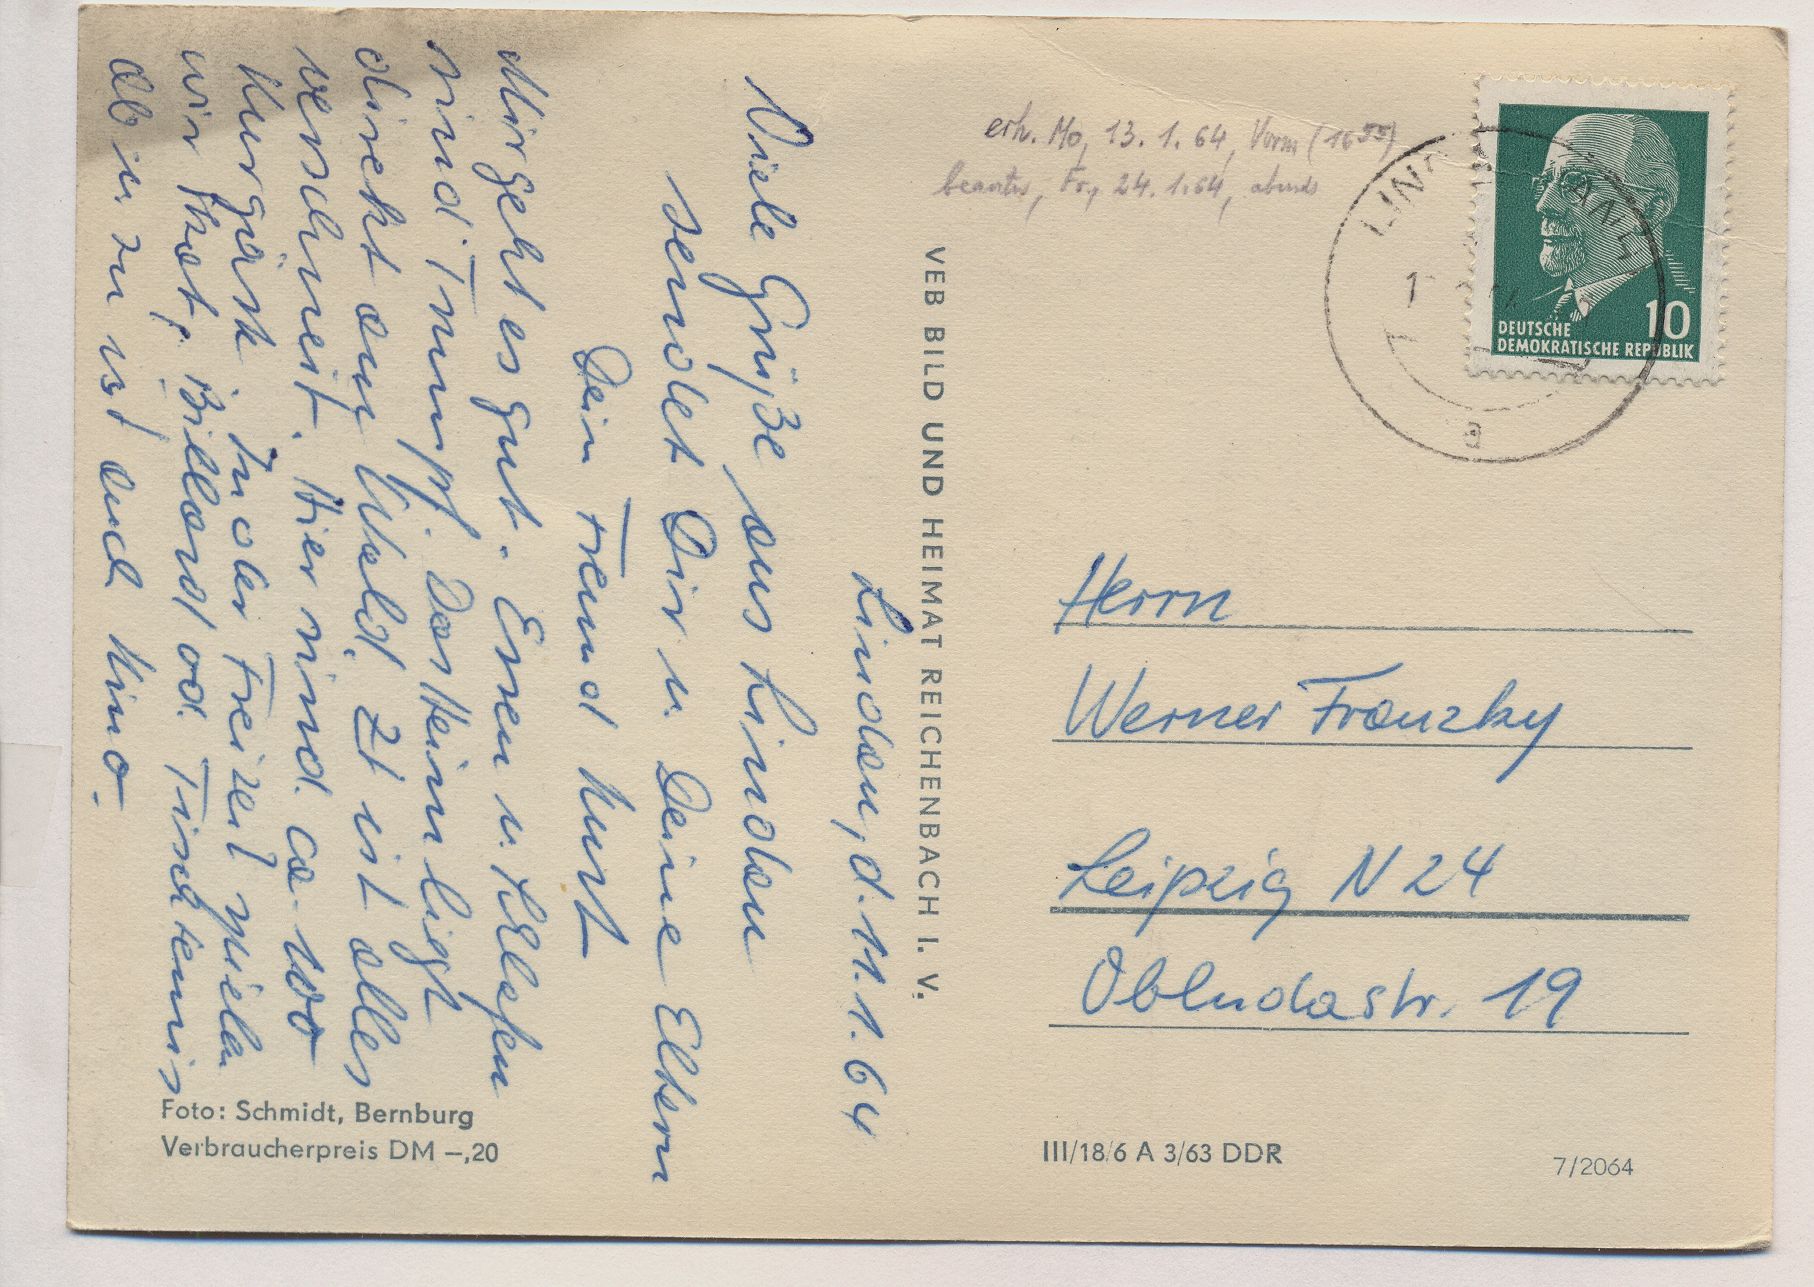 Linden, d. 11.1.64
Viele Grüße aus Linden
sendet Dir u. Deine Eltern
Dein Freund Kurt
Mir geht es gut. Essen u. Schlafen
sind Trumpf. Das Heim liegt
direkt am Wald. Zt ist alles
verschneit. Hier sind ca. 100
Kurgäste. In der Freizeit spielen
wir Skat, Billard od. Tischtennis
ab u. zu ist auch Kino.
Foto: Schmidt, Bernburg
Verbraucherpreis DM –,20
VEB BILD UND HEIMAT REICHENBACH I. V.
erh. Mo, 13. 1. 64, Vorm (16⁵⁵)
beantw, Fr., 24. 1. 64, abends
DEUTSCHE
DEMOKRATISCHE REPUBLIK
10
Herrn
Werner Franzky
Leipzig N 24
Obludastr. 19
III/18/6 A 3/63 DDR
7/2064